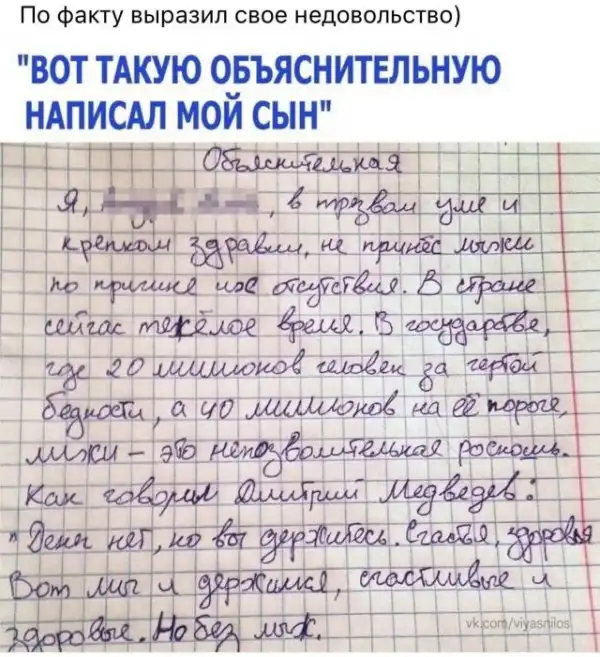 По факту выразил свое недовольство)
"ВОТ ТАКУЮ ОБЪЯСНИТЕЛЬНУЮ
НАПИСАЛ МОЙ СЫН"
Объяснительная
Я, , в трезвом уме и
крепком здравии, не принёс лыжи
по причине их отсутствия. В стране
сейчас тяжёлое время. В государстве,
где 20 миллионов человек за чертой
бедности, а 40 миллионов на её пороге,
лыжи – это непозволительная роскошь.
Как говорил Дмитрий Медведев:
"Денег нет, но вы держитесь. Счастья, здоровья
Вот мы и держимся, счастливые и
здоровые. Но без лыж.
vk.com/viyasnilos